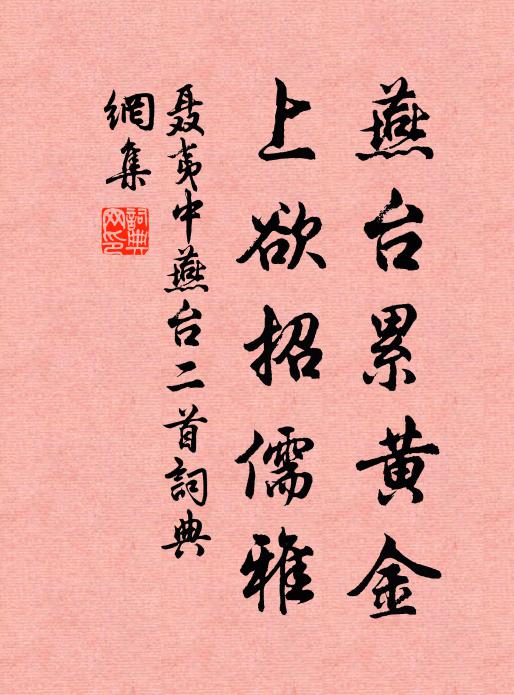 燕台累黄金
上欲招儒雅
聂夷中燕台二首詞典
網集
詞典
网印